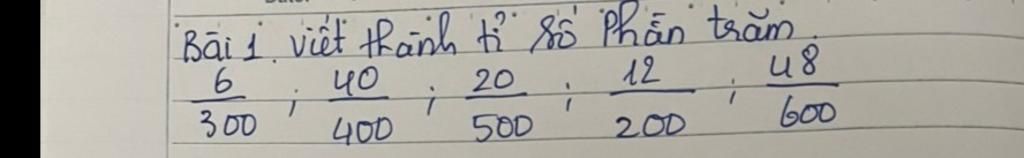 Bài 1. Viết thành tỉ số Phần trăm.
6/300 ; 40/400 ; 20/500 ; 12/200 ; 48/600